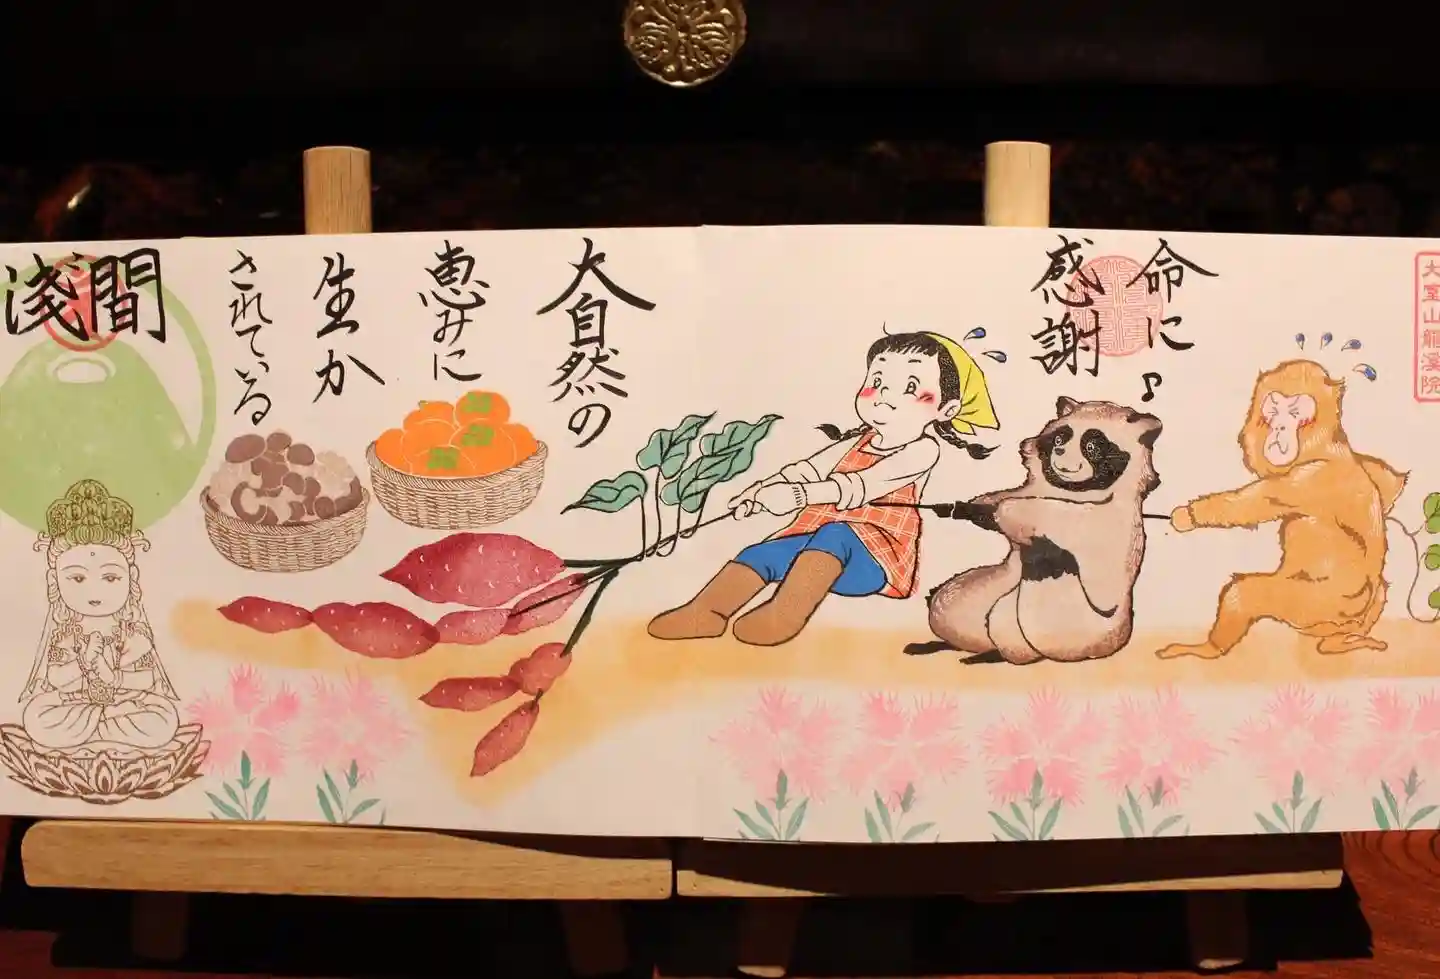 大室山龍渓院
命に
感謝♪
大自然の
恵みに
生か
されている
浅間